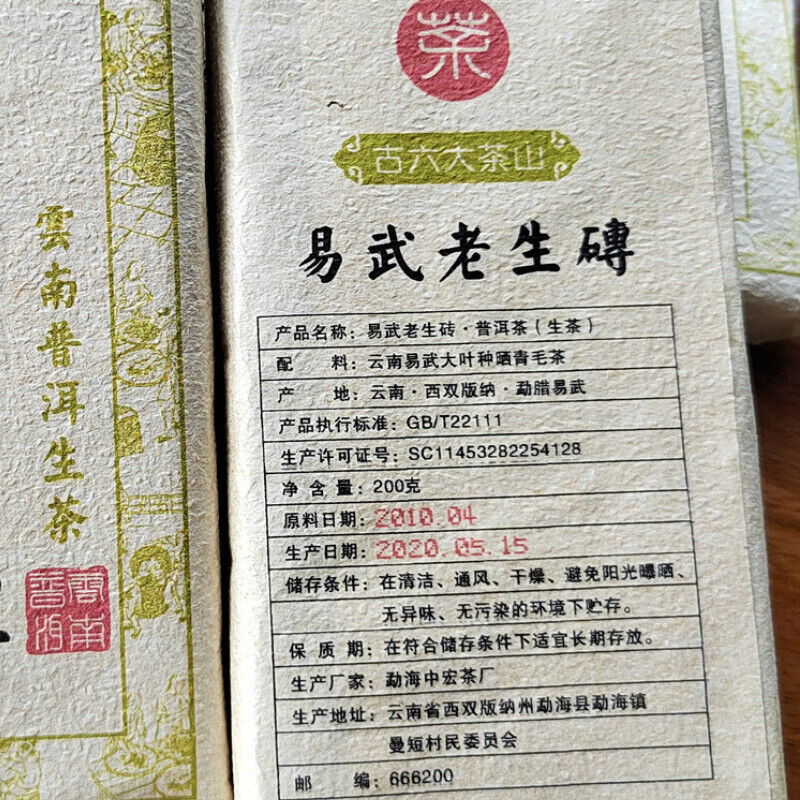 茶
古六大茶山
易武老生磚
产品名称：易武老生砖·普洱茶（生茶）
配 料：云南易武大叶种晒青毛茶
产 地：云南·西双版纳·勐腊易武
产品执行标准：GB/T22111
生产许可证号：SC11453282254128
净 含 量：200克
原料日期：2010.04
生产日期：2020.05.15
储存条件：在清洁、通风、干燥、避免阳光曝晒、
无异味、无污染的环境下贮存。
保 质 期：在符合储存条件下适宜长期存放。
生产厂家：勐海中宏茶厂
生产地址：云南省西双版纳州勐海县勐海镇
曼短村民委员会
邮 编：666200
雲南普洱生茶
雲南
普洱